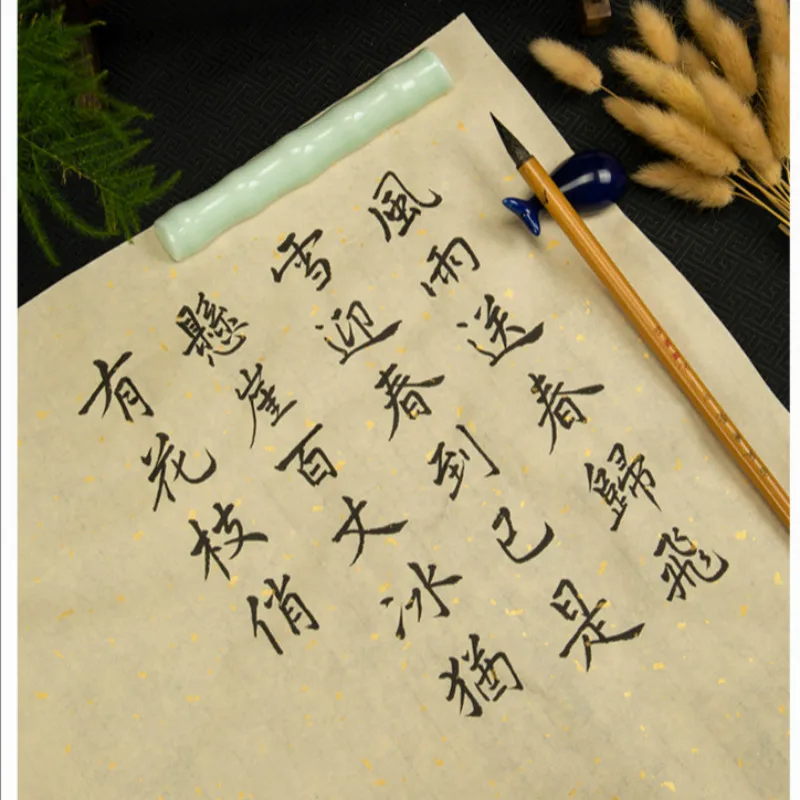 風雨送春歸飛
雪迎春到已是
懸崖百丈冰猶
有花枝俏